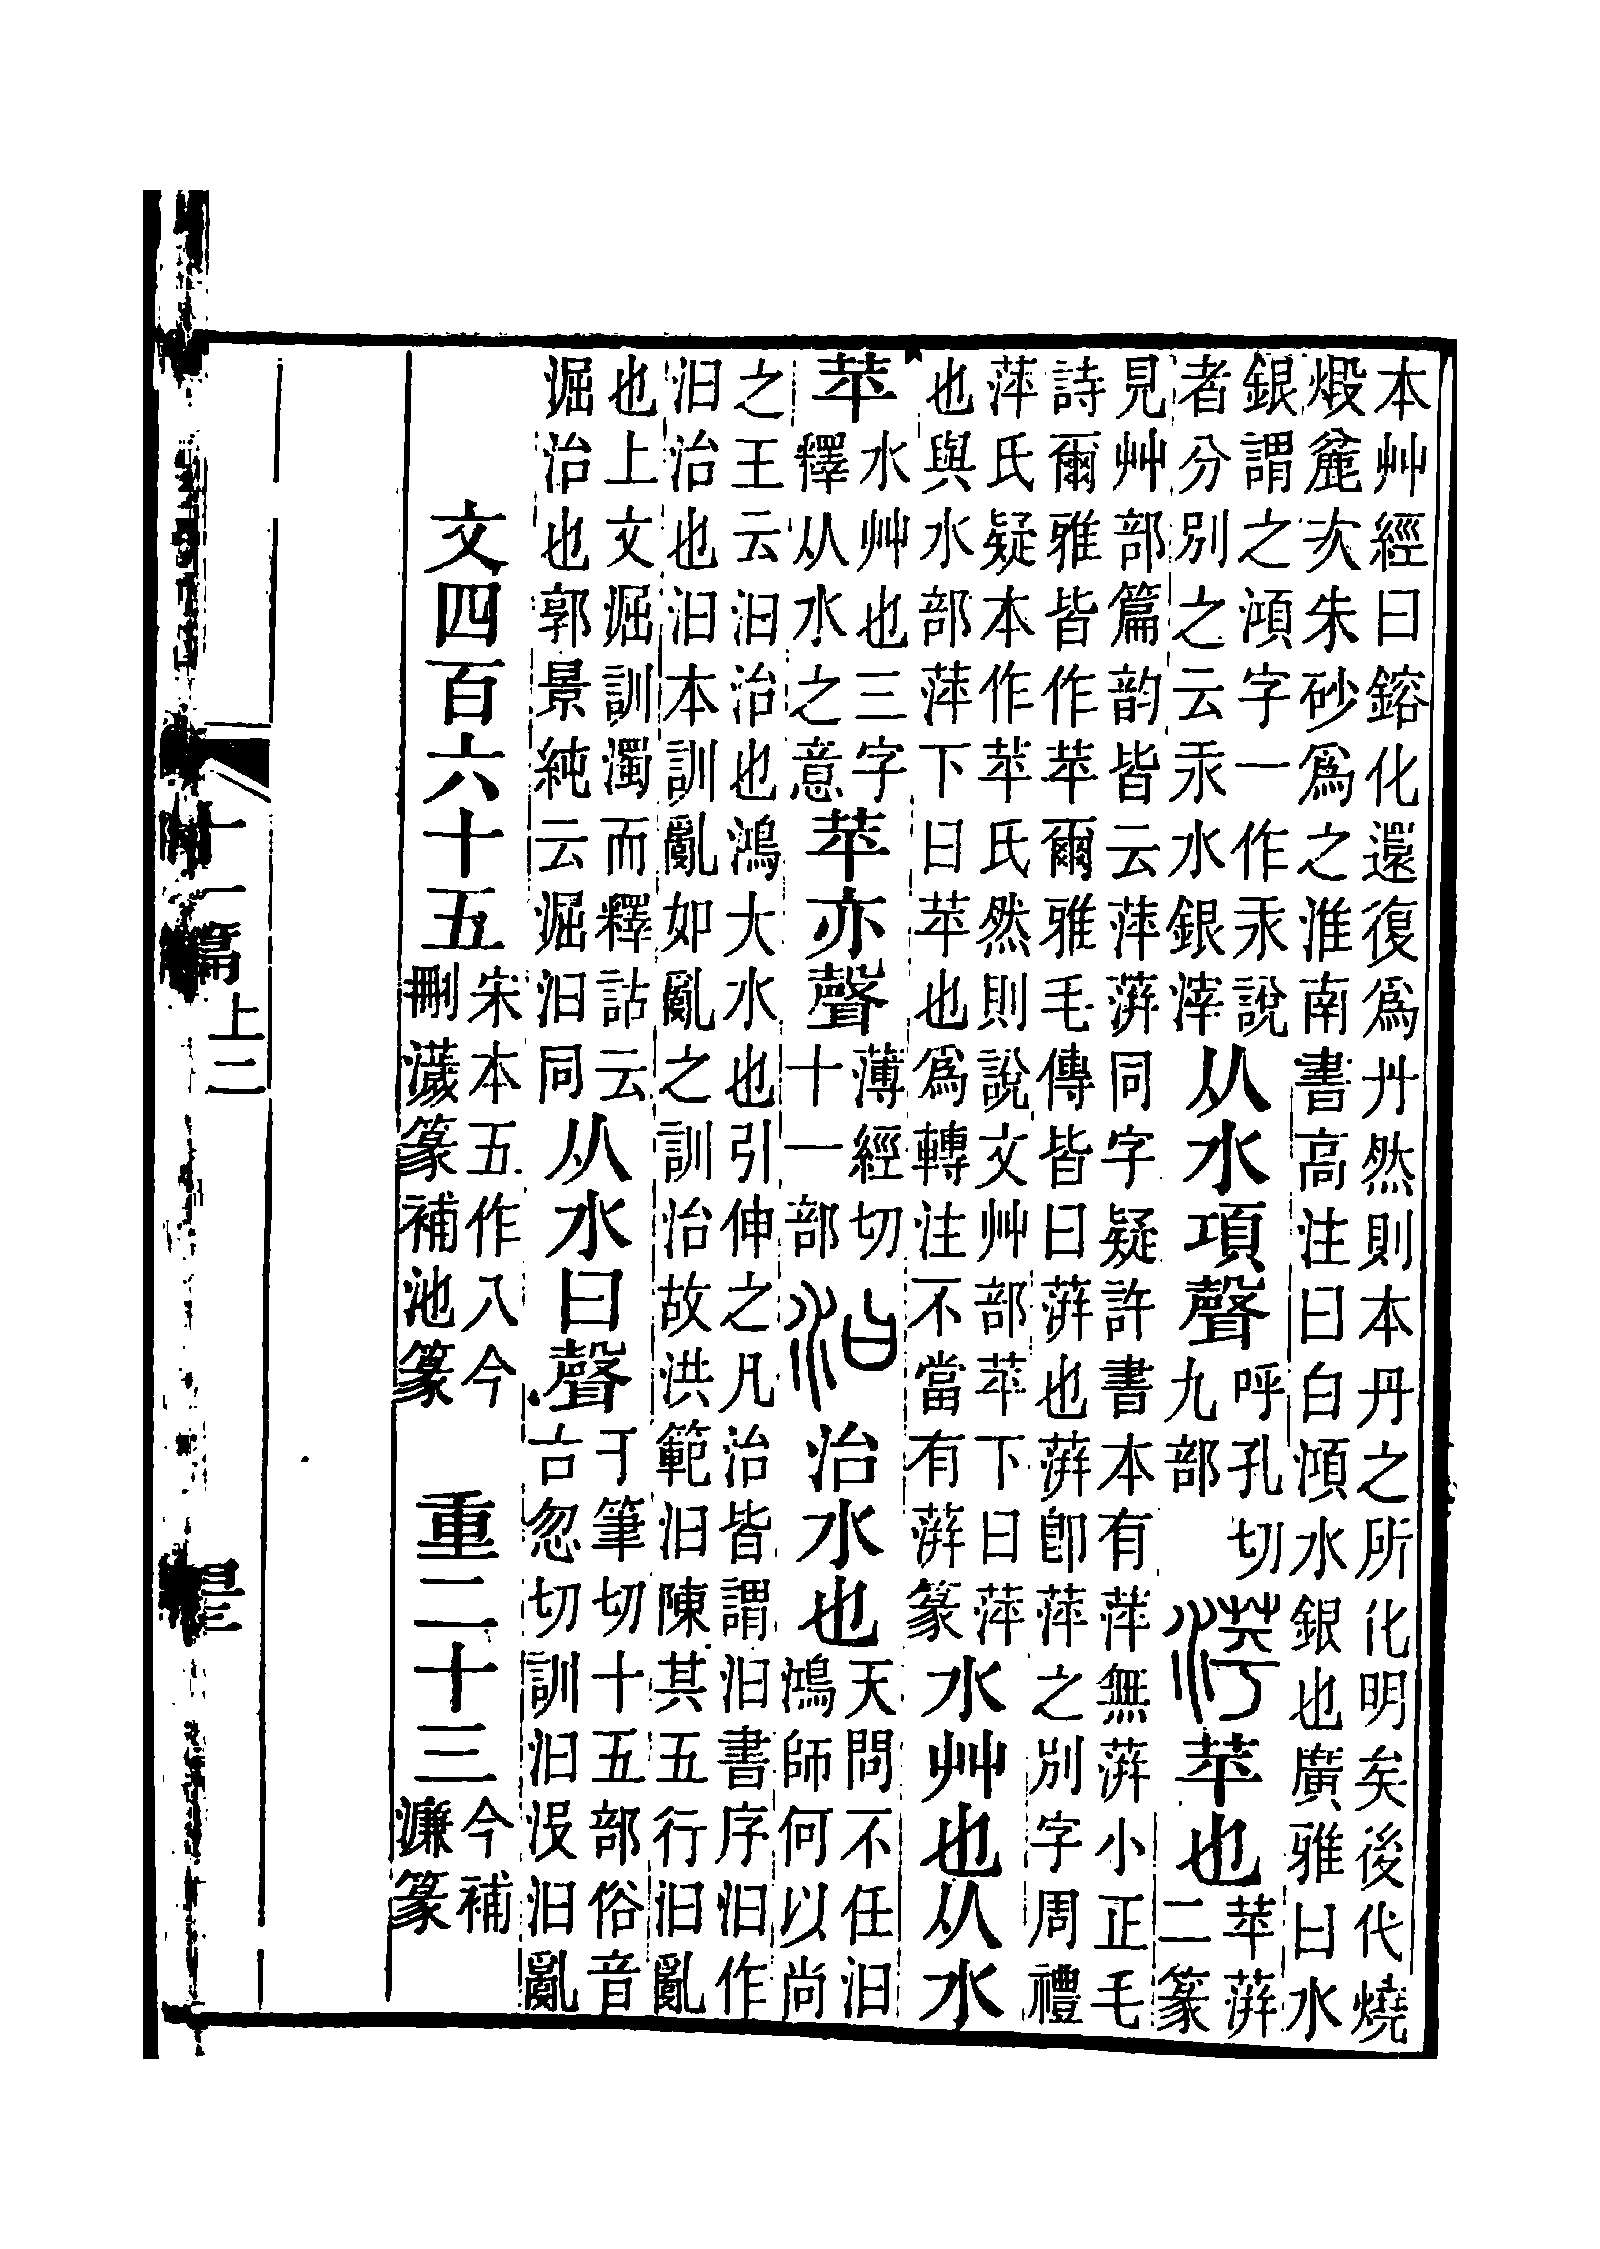 本艸經曰鎔化還復爲丹然則本丹之所化明矣後代燒
煅麄次朱砂爲之淮南書高注曰白澒水銀也廣雅曰水
銀謂之澒字一作汞說
者分別之云汞水銀滓
从水項聲
呼孔切
九部
萍
苹也
苹蓱
二篆
見艸部篇韵皆云萍蓱同字疑許書本有萍無蓱小正毛
詩爾雅皆作苹爾雅毛傳皆曰蓱也蓱卽萍之別字周禮
萍氏疑本作苹氏然則說文艸部苹下曰萍
也與水部萍下曰苹也爲轉注不當有蓱篆
水艸也从水
苹
水艸也三字
釋从水之意
苹亦聲
薄經切
十一部
汩
治水也
天問不任汩
鴻師何以尚
之王云汩治也鴻大水也引伸之凡治皆謂汩書序汩作
汩治也汩本訓亂如亂之訓治故洪範汩陳其五行汩亂
也上文淈訓濁而釋詁云
淈治也郭景純云淈汩同
从水曰聲
于筆切十五部俗音
古忽切訓汩汩亂
文四百六十五
宋本五作八今
刪濊篆補池篆
重二十三
今補
濂篆
十一篇
上二